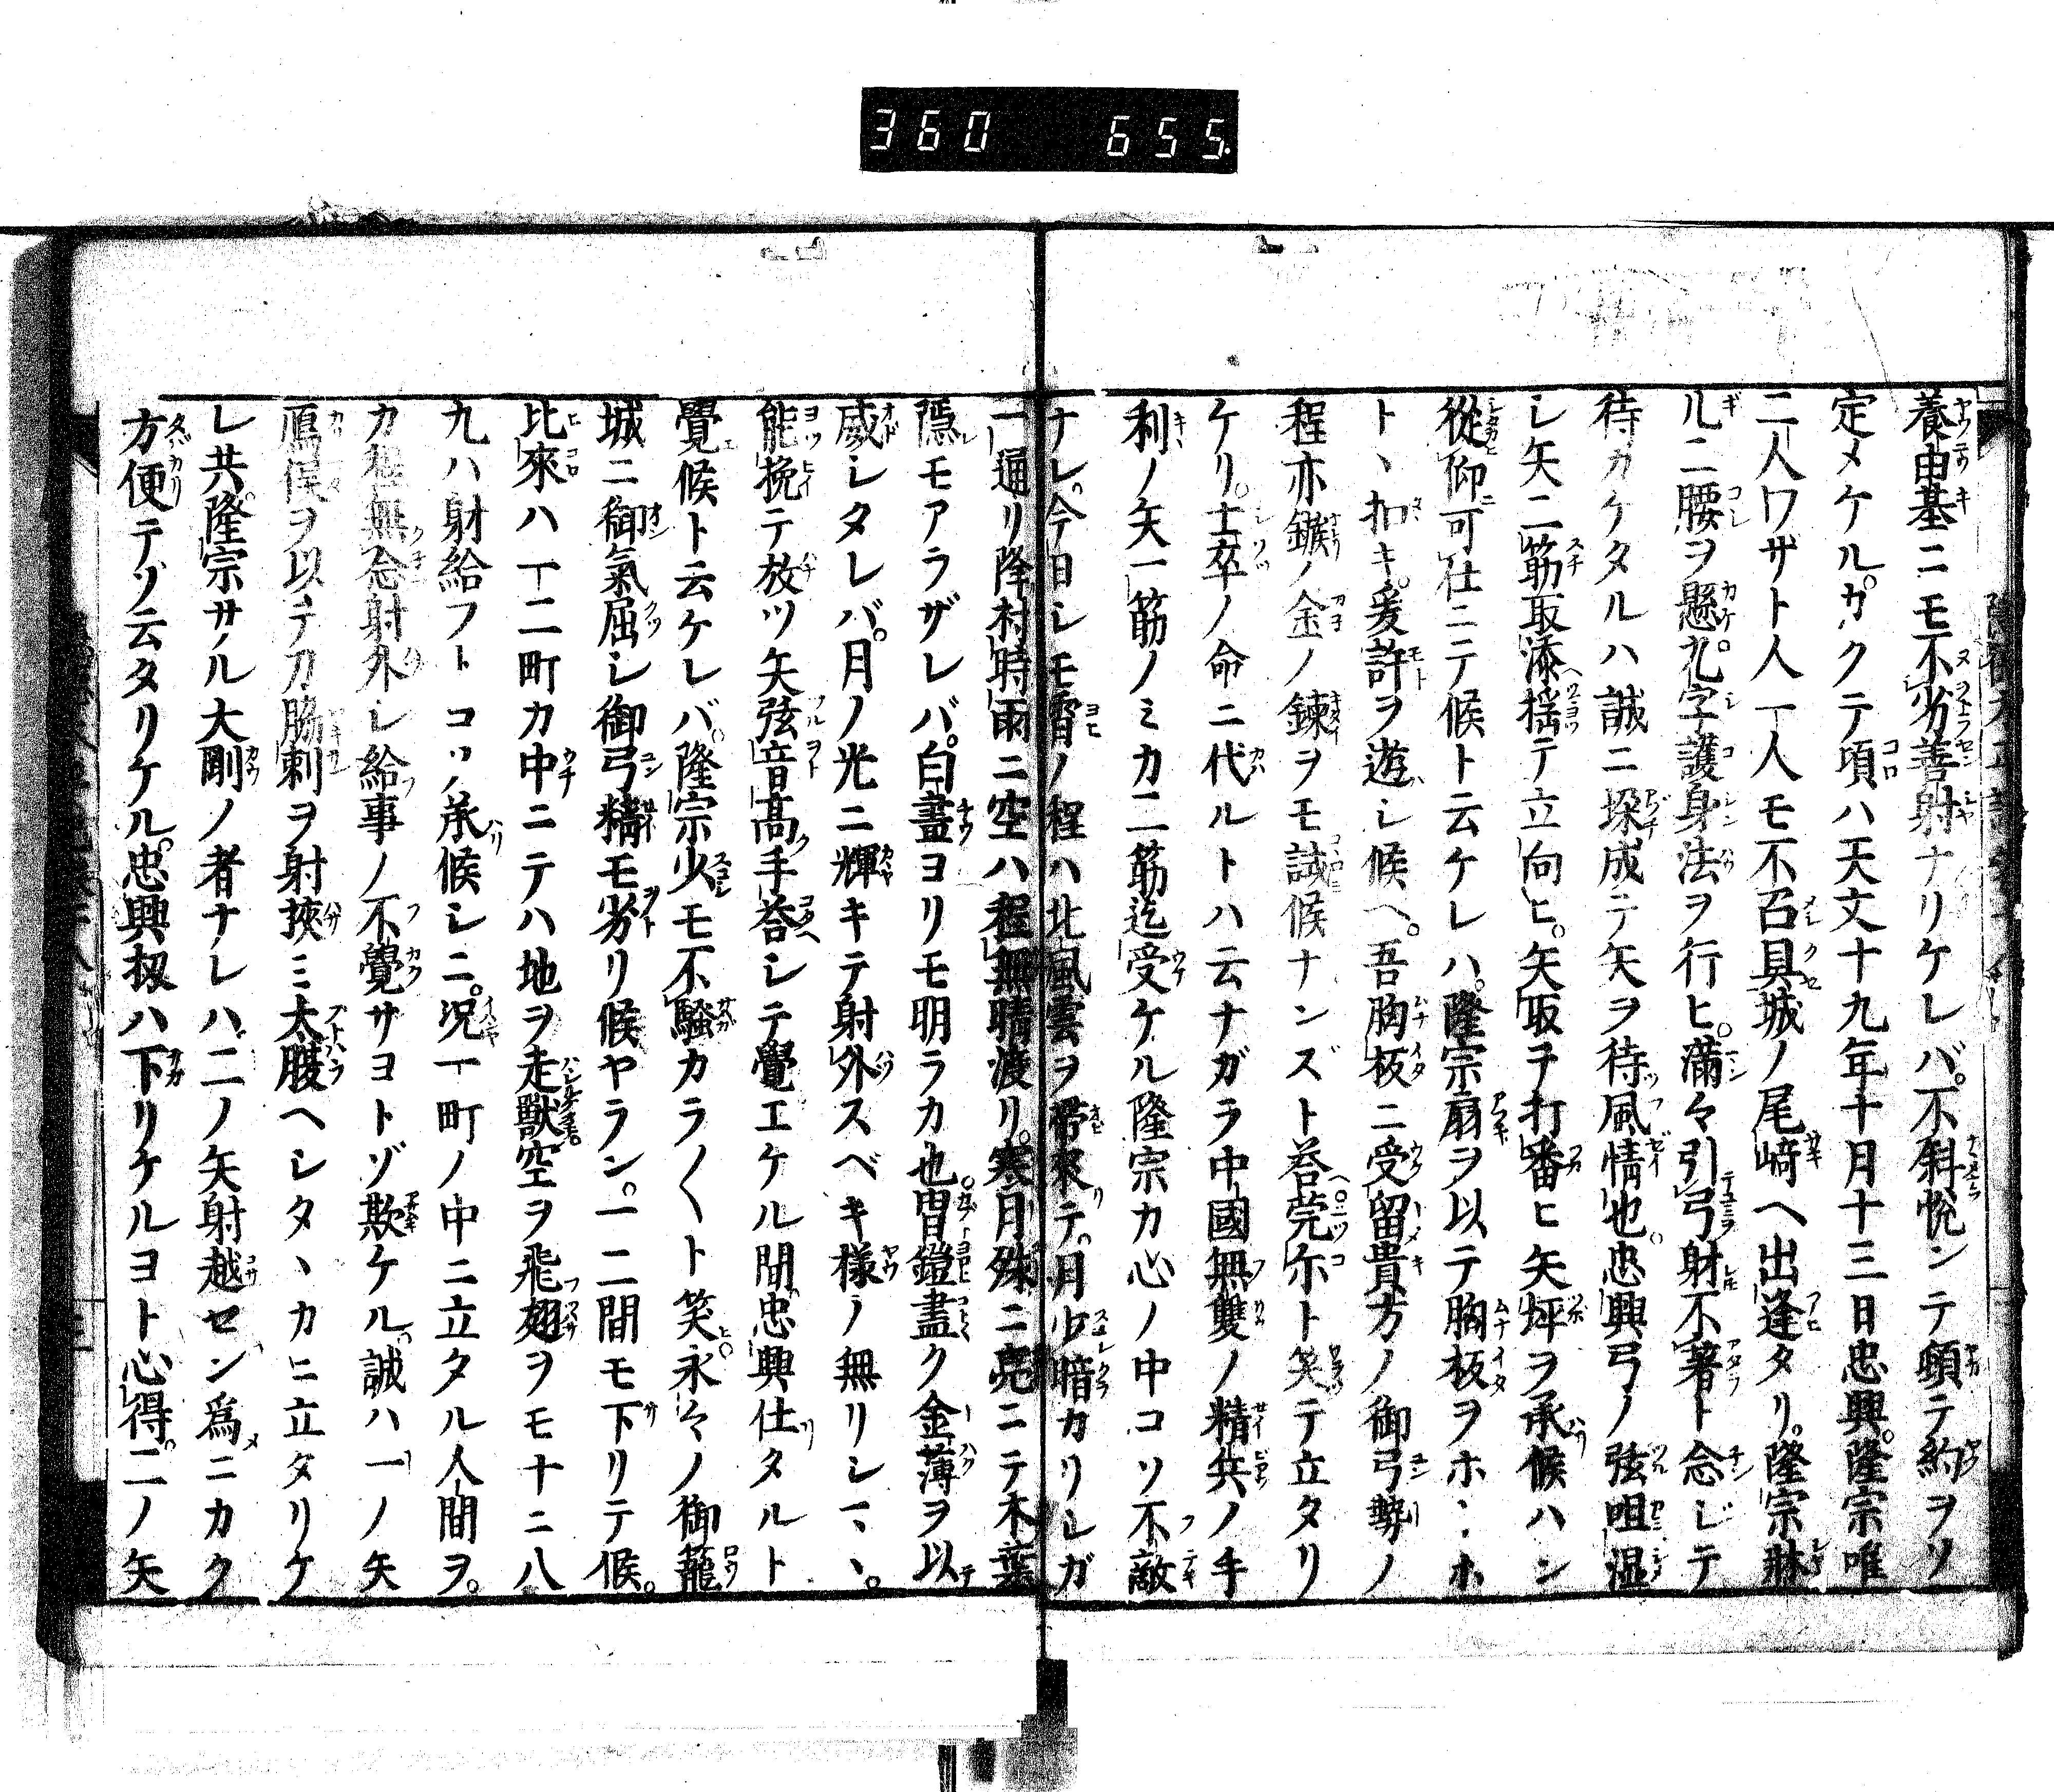 360 655
養由基ニモ不劣善射ナリケレバ。不斜悦ンテ頓テ約ヲソ
定メケル。カクテ頃ハ天文十九年十月十三日忠興。隆宗唯
二人ワザト人一人モ不召具城ノ尾﨑ヘ出逢タリ。隆宗牀
ル二腰ヲ懸。九字護身法ヲ行ヒ。滿々引弓射不著ト念ジテ
待カケタルハ誠ニ垜成テ矢ヲ待風情也。忠興弓ノ弦咀湿
シ矢二筋取添揺テ立向ヒ。矢取テ打番ヒ矢坪ヲ承候ハン
從仰可仕ニテ候ト云ケレハ。隆宗扇ヲ以テ胸板ヲホヽホ
トヽ扣キ。爰許ヲ遊シ候ヘ。吾胸板ニ受留貴方ノ御弓勢ノ
程亦鏃ノ金ノ鍊ヲモ試候ナンズト荅莞尓ト笑テ立タリ
ケリ。士卒ノ命ニ代ルトハ云ナガラ中國無雙ノ精兵ノ手
利ノ矢一筋ノミカ二筋迄受ケル隆宗カ心ノ中コソ不敵
ナレ。今日シモ宵ノ程ハ北風雲ヲ帶來テ。月少暗カリシガ
一通リ降村時雨ニ空ハ程無晴渡リ。寒月殊ニ亮ニテ木葉
隱モアラザレバ。白晝ヨリモ明ラカ也。冑鎧盡ク金薄ヲ以
威シタレバ。月ノ光ニ輝キテ射外スベキ樣ノ無リシヽ。
能挽テ放ツ矢弦音髙手荅シテ覺エケル間。忠興仕タルト
覺候ト云ケレバ。隆宗少モ不騒カラ〳〵ト笑永々ノ御籠
城ニ御氣屈シ御弓精モ劣リ候ヤラン。一二間モ下リテ候。
比來ハ一二町カ中ニテハ地ヲ走獸空ヲ飛翅ヲモ十ニ八
九ハ射給フトコソ承候シニ。况一町ノ中ニ立タル人間ヲ。
カ程無念射外シ給事ノ不覺サヨトゾ欺ケル。誠ハ一ノ矢
鴈俣ヲ以テ刀脇刺ヲ射挾ミ太腹ヘシタヽカニ立タリケ
レ共。隆宗サル大剛ノ者ナレハ。二ノ矢射越セン爲ニカク
方便テゾ云タリケル。忠興扨ハ下リケルヨト心得。二ノ矢